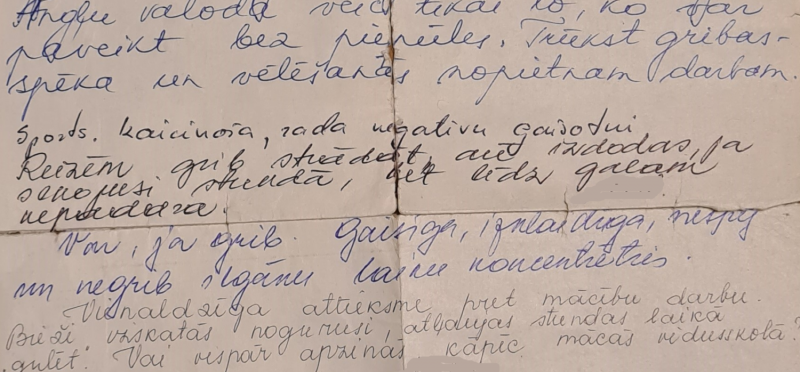 Angļu valodā veic tikai to, ko var
paveikt bez piepūles. Trūkst gribas-
spēka un vēlēšanās nopietnam darbam.
Sports. kaitinoša, rada negatīvu gaisotni
Reizēm grib strādāt, arī izdodas, ja
stundā, bet līdz galam
nepadara.
Var, ja grib. Gaisīga, izklaidīga, nespēj
un negrib ilgāku laiku koncentrēties.
Vienaldzīga attieksme pret mācību darbu.
Bieži izskatās nogurusi, atļaujas stundas laikā
"gulēt". Vai vispār apzinās kāpēc mācās vidusskolā?